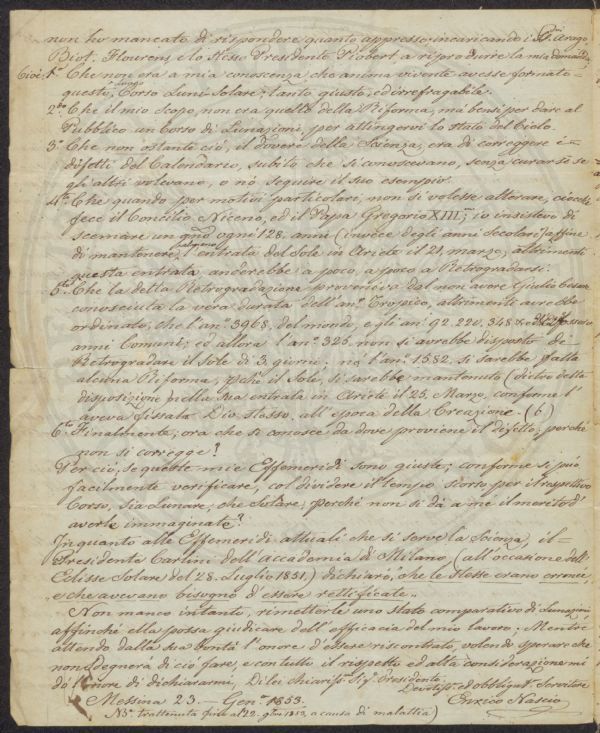 non ho mancato di rispondere quanto appresso, incaricando i Sig.ri Arago
Biot, Flourens, e lo stesso Presidente Piobert a riprodurre la mia domanda
Cioè: 1.° Che non era a mia conoscenza che anima vivente avesse formato
questo lungo Corso Luni Solare, tanto giusto, ed irrefragabile.
2.do Che il mio scopo, non era quello della Riforma, ma bensì per dare al
Pubblico un Corso di Lunazioni, per attingervi lo stato del Cielo.
3.° Che non ostante ciò, il dovere della Scienza, era di correggere i
difetti del Calendario, subito che si conoscevano, senza curarsi se
gli altri volevano, o nò seguire il suo esempio.
4.to Che quando per motivi particolari, non si volesse alterare, ciocchè
fece il Concilio Niceno, ed il Papa Gregorio XIII; io insistevo di
scemare un gno ogni 128. anni (invece degli anni Secolari) affine
di mantenere, l'entrata del Sole in Ariete il 21, marzo, altrimenti
questa entrata anderebbe a poco, a poco a Retrogradarsi.
5.to Che la detta Retrogradazione proveniva dal non avere Giulio Cesare
conosciuta la vera durata dell'an.° Tropico, altrimenti avrebbe
ordinato, che l'an.° 3968, del mondo, e gli an.i 92. 220. 348 fossero
anni Comuni; ed allora l'an.° 325 non si avrebbe disposto di
Retrogradare il Sole di 3, giorni; nè l'an.° 1582, si sarebbe fatta
alcuna Riforma, pchè il Sole, si sarebbe mantenuto (dietro detta
disposizione) nella sua entrata in Ariete il 25, Marzo, conforme l'
aveva fissata Dio stesso, all'epoca della Creazione. (6)
6.to Finalmente; ora che si conosce da dove proviene il difetto, perchè
non si corregge?
Per ciò, se queste mie Effemeridi sono giuste; conforme si può
facilmente verificare, col dividere il tempo scorso per il rispettivo
Corso, sia Lunare, che Solare; perchè non si dà a me il merito d'
averle immaginate?
In quanto alle Effemeridi attuali che si serve la Scienza, il
Presidente Carlini dell'accademia di Milano (all'occasione dell'
Eclisse Solare del 28. Luglio 1851.) dichiarò, che le stesse erano erronee,
e che avevano bisogno d'essere rettificate.
Non manco intanto, rimetterle uno stato comparativo di Lunazioni
affinchè ella possa giudicare dell'efficacia del mio lavoro. Mentre
attendo dalla sua bontà l'onore d'essere riscontrato, volendo sperare che
non sdegnerà di ciò fare, e con tutto il rispetto ed alta considerazione mi
dò l'onore di dichiararmi, Di lei chiaris.° Sig.r Presidente
Devotiss.° ed obbligat.° Servitore
Messina 23. Gen.° 1853.
Enrico
N.B. trattenuta fino al 22. 1853, a causa di malattia)